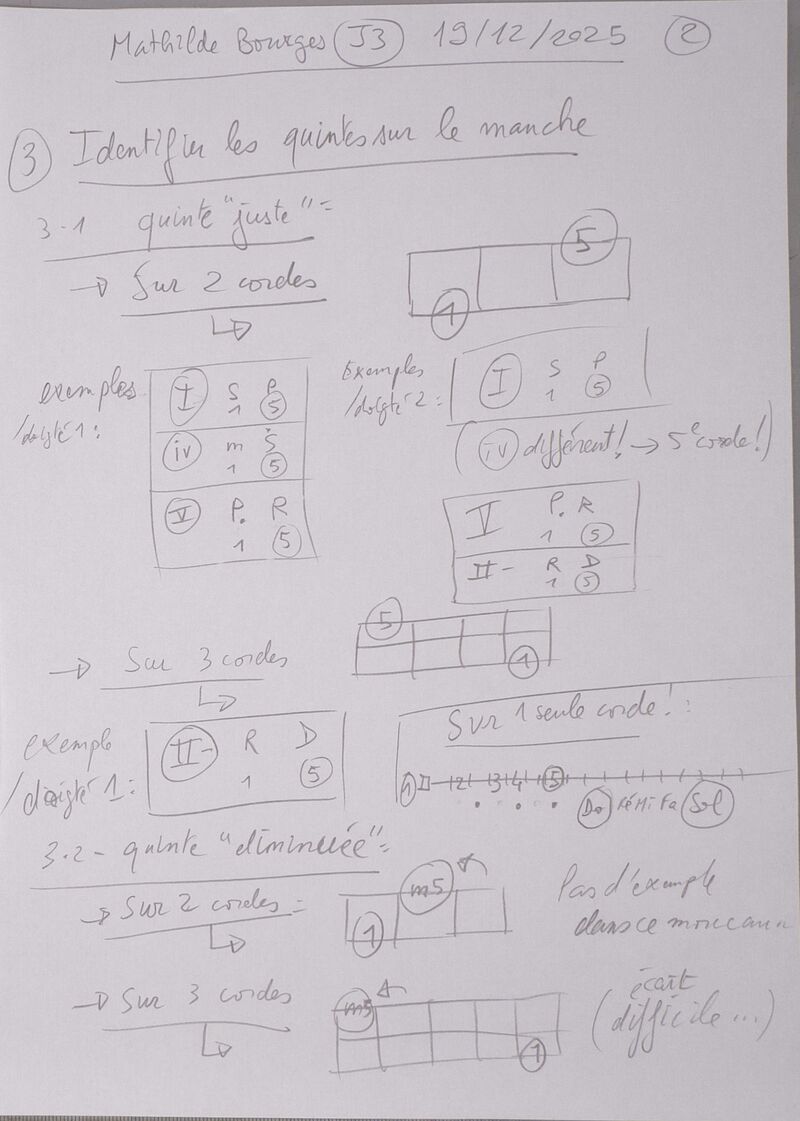 Mathilde Bourges J3 19/12/2025 2
3 Identifier les quintes sur le manche
3-1 quinte "juste" =
→ Sur 2 cordes
5
1
exemples
/doigté 1 :
I S P
1 5
iv m S
1 5
V P. R
1 5
Exemples
/doigté 2 =
I S P
1 5
(iv différent! → 5e corde!)
V P. R
1 5
II- R D
1 5
→ Sur 3 cordes
5
1
exemple
/doigté 1 :
II- R D
1 5
Sur 1 seule corde! :
1 2 3 4 5
Do Ré Mi Fa Sol
3.2 - quinte "diminuée" =
→ Sur 2 cordes =
m5
1
Pas d'exemple
dans ce morceau
→ Sur 3 cordes
m5
1
écart
(difficile...)